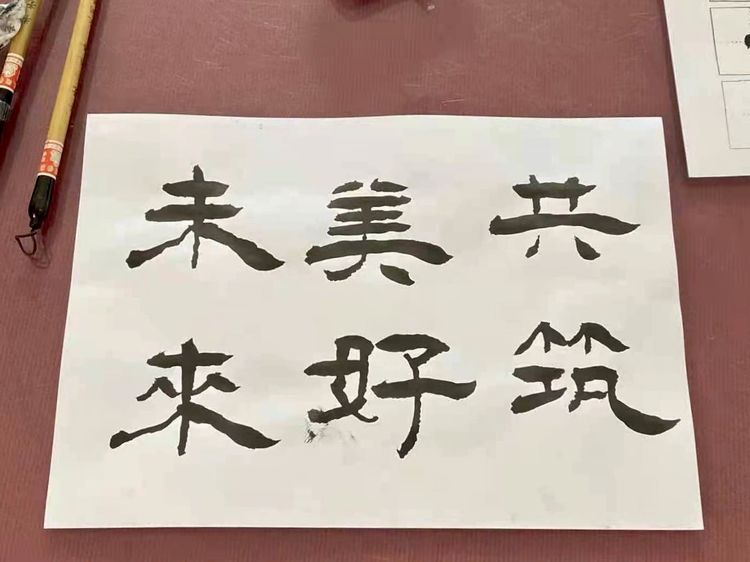 共筑
美好
未來